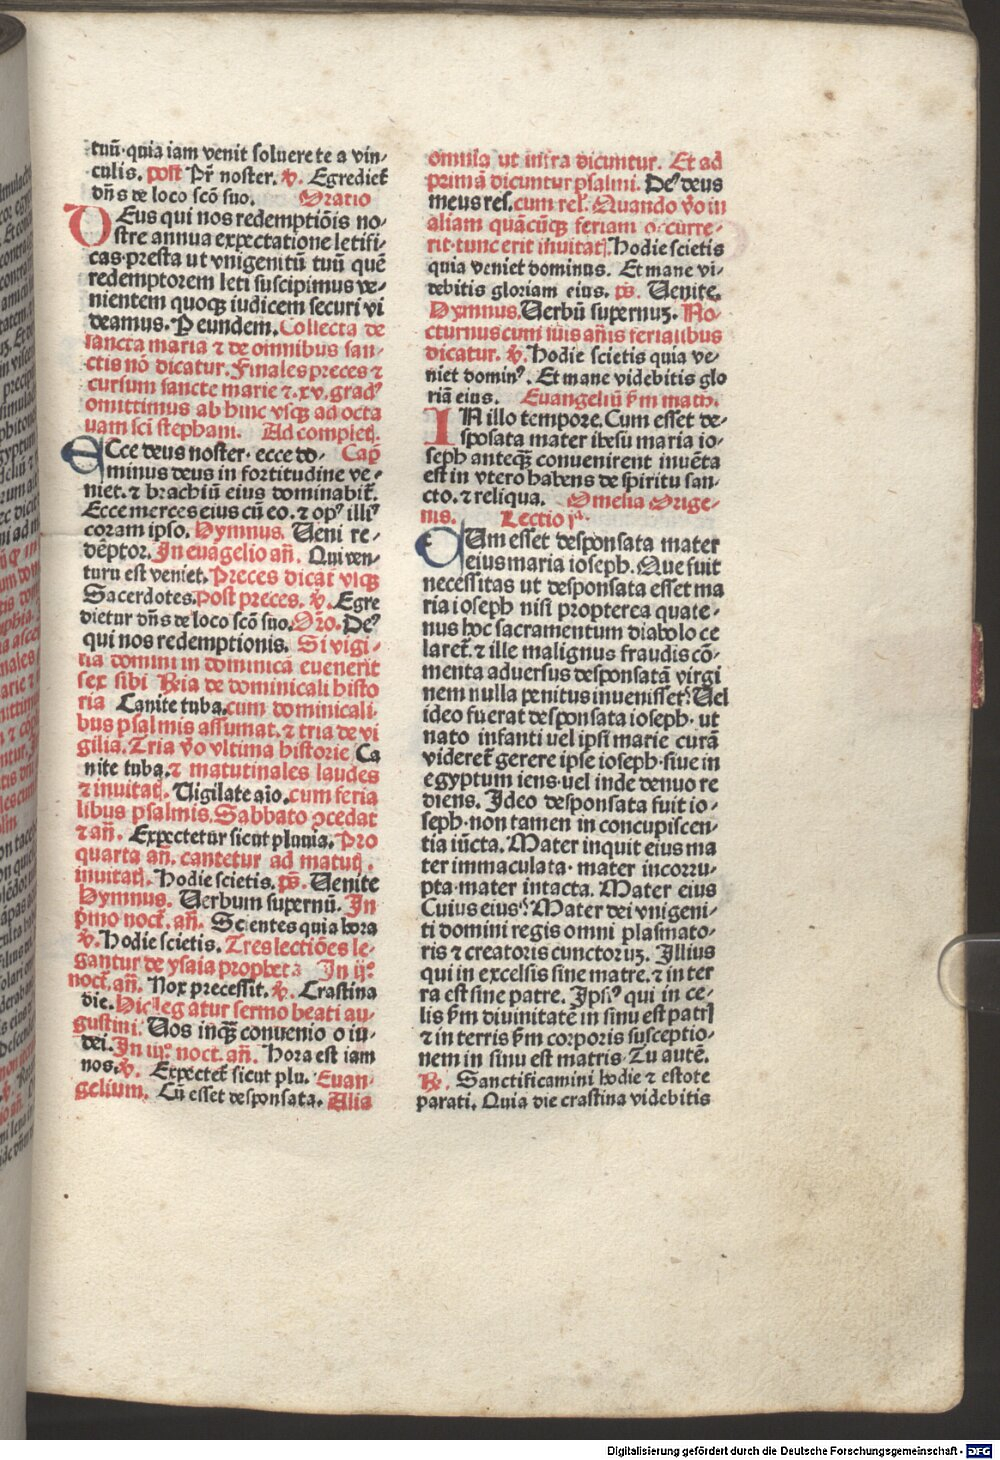 tuū·quia iam venit soluere te a vin-
culis. post Pr̄ noster. ꝟ. Egrediet̄
dn̄s de loco scō suo. Oratio
DEus qui nos redemptiōis no-
stre annua expectatione letifi-
cas·presta ut vnigenitū tuū quē
redemptorem leti suscipimus ve-
nientem quoqꝫ iudicem securi vi
deamus. P eundem. Collecta de
sancta maria ⁊ de omnibus san-
ctis nō dicatur. Finales preces ⁊
cursum sancte marie ⁊.xv. gradꝰ
omittimus ab hinc vsqꝫ ad octa
uam sci stephani. Ad completꝭ.
ECce deus noster· ecce do- Cap̄
minus deus in fortitudine ve-
niet. ⁊ brachiū eius dominabit̄.
Ecce merces eius cū eo. ⁊ opꝰ illiꝰ
coram ipso. Hymnus. Veni re-
dēptor. In euāgelio an̄. Qui ven-
turu est veniet. Preces dicāt̄ vsqꝫ
Sacerdotes. Post preces. ꝟ. Egre
dietur dn̄s de loco scō suo. Oro. Deꝰ
qui nos redemptionis. Si vigi-
lia domini in dominicā euenerit
sex sibi Ria de dominicali histo
ria Canite tuba. cum dominicali-
bus psalmis assumat. ⁊ tria de vi
gilia. Tria v̄o vltima historie Ca
nite tuba. ⁊ matutinales laudes
⁊ inuitatꝭ. Vigilate aīo. cum feria
libus psalmis. Sabbato ꝓcedat
⁊ an̄. Expectetur sicut pluuia. Pro
quarta an̄. cantetur ad matutꝭ.
inuitatꝭ. Hodie scietis. ps̄. Venite
Hymnus. Verbum supernū. In
pmo noct̄. an̄. Scientes quia hora
ꝟ. Hodie scietis. Tres lectiōes le-
gantur de ysaia propheta In ijꝰ
noct̄. an̄. Nox precessit. ꝟ. Crastina
die. Hic legatur sermo beati au-
gustini. Vos inqꝫ conuenio o iu-
dei. In iijꝰ noct̄. an̄. Hora est iam
nos. ꝟ. Expectet̄ sicut plu. Euan-
gelium. Cū esset desponsata. Alia
omnia ut infra dicuntur. Et ad
primā dicuntur psalmi. Deꝰ deus
meus res. cum relꝭ. Quando v̄o in
aliam quācūqꝫ feriam occurre-
rit·tunc erit inuitatꝭ. Hodie scietis
quia veniet dominus. Et mane vi-
debitis gloriam eius. ps̄. Venite.
Hymnus. Verbū supernuꝫ. No-
cturnus cum suis an̄is ferialibus
dicatur. ꝟ. Hodie scietis quia ve-
niet dominꝰ. Et mane videbitis glo
riā eius. Euangeliū s̄m math.
IN illo tempore. Cum esset de-
sposata mater ihesu maria io-
seph anteqꝫ conuenirent inuēta
est in vtero habens de spiritu san-
cto. ⁊ reliqua. Omelia Orige-
nis. Lectio jᵃ.
CUm esset desponsata mater
eius maria ioseph. Que fuit
necessitas ut desponsata esset ma
ria ioseph nisi propterea quate-
nus hoc sacramentum diabolo ce
laret̄. ⁊ ille malignus fraudis cō-
menta aduersus desponsatā virgi
nem nulla penitus inuenisset? Vel
ideo fuerat desponsata ioseph· ut
nato infanti uel ipsi marie curā
videret̄ gerere ipse ioseph·siue in
egyptum iens·uel inde denuo re
diens. Ideo desponsata fuit io-
seph·non tamen in concupiscen-
tia iūcta. Mater inquit eius ma
ter immaculata· mater incorru-
pta·mater intacta. Mater eius
Cuius eius? Mater dei vnigeni-
ti domini regis omni plasmato-
ris ⁊ creatoris cunctoruꝫ. Illius
qui in excelsis sine matre. ⁊ in ter
ra est sine patre. Ipsiꝰ qui in ce-
lis s̄m diuinitatē in sinu est patrꝭ
⁊ in terris s̄m corporis susceptio-
nem in sinu est matris. Tu autē.
℟. Sanctificamini hodie ⁊ estote
parati. Quia die crastina videbitis
Digitalisierung gefördert durch die Deutsche Forschungsgemeinschaft - DFG